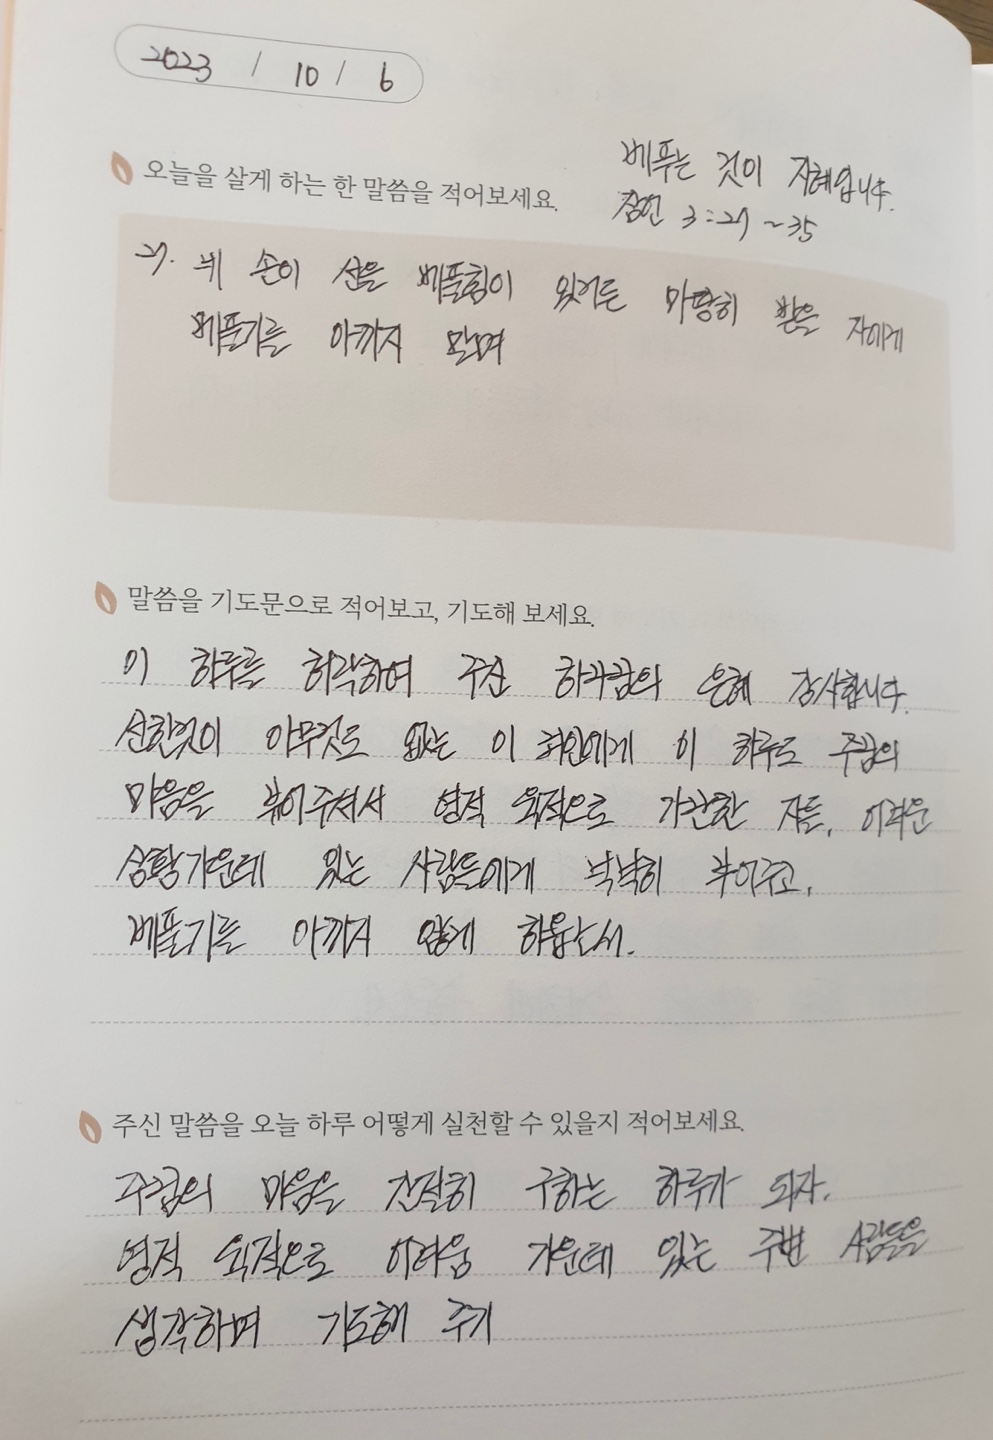 2023 / 10 / 6
오늘을 살게 하는 한 말씀을 적어보세요.
베푸는 것이 지혜입니다.
잠언 3:27~35
27. 네 손이 선을 베풀힘이 있거든 마땅히 받을 자에게
베풀기를 아끼지 말며
말씀을 기도문으로 적어보고, 기도해 보세요.
이 하루를 허락하여 주신 하나님의 은혜 감사합니다.
선한것이 아무것도 없는 이 죄인에게 이 하루도 주님의
마음을 부어주셔서 영적 육적으로 가난한 자들, 어려운
상황가운데 있는 사람들에게 넉넉히 부어주고,
베풀기를 아끼지 않게 하옵소서.
주신 말씀을 오늘 하루 어떻게 실천할 수 있을지 적어보세요.
주님의 마음을 간절히 구하는 하루가 되자.
영적 육적으로 어려움 가운데 있는 주변 사람들을
생각하며 기도해 주기